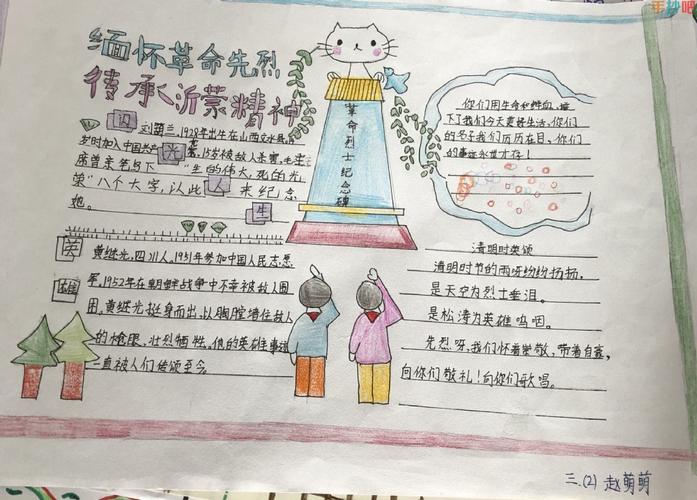 缅怀革命先烈
传承沂蒙精神
闪
光
人
生
刘胡兰,1928年出生在山西文水县,
岁时加入中国共产 ,15岁被敌人杀害,毛主
席曾亲笔写下 "生的伟大,死的光
荣"八个大字,认此 来纪念
她。
英
雄
黄继光,四川人,1951年参加中国人民志愿
军,1952年在朝鲜战争中不幸被敌人围
困,黄继光挺身而出,以胸膛堵住敌人
的枪眼,壮烈牺牲,他的英雄事迹
一直被人们传颂至今。
革命烈士纪念碑
你们用生命和鲜血,
下了我们今天美好生活,你们
的名子我们历历在目,你们
的事迹永世才存!
清明时类颂
清明时节的雨呀纷纷扬扬,
是天空为烈士垂泪。
是松涛为英雄呜咽。
先烈呀,我们怀着崇敬,带着自豪,
向你们敬礼!向你们歌唱。
三.(2) 赵萌萌
手抄吧